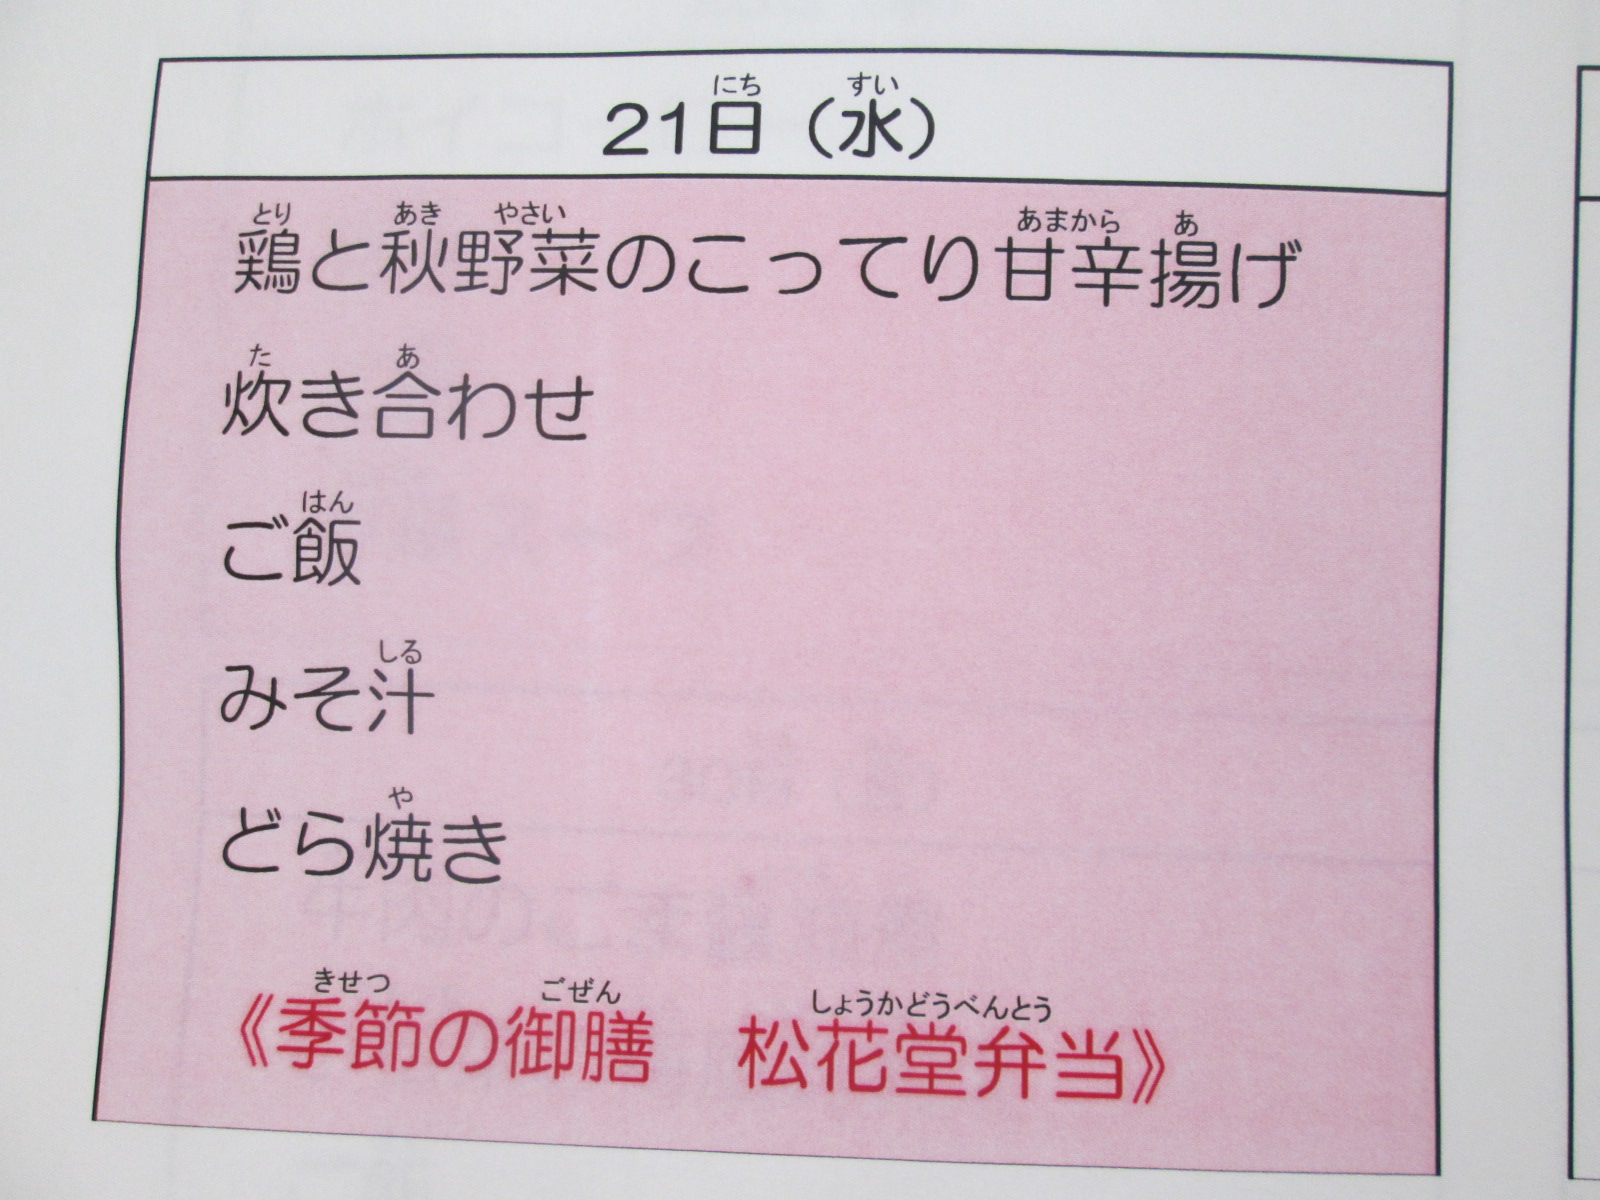 21日（水）
鶏と秋野菜のこってり甘辛揚げ
炊き合わせ
ご飯
みそ汁
どら焼き
《季節の御膳　松花堂弁当》